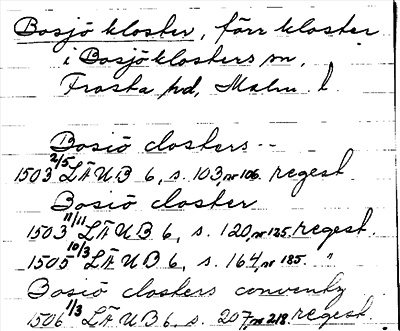 Bosjö kloster, förr kloster
i Bosjöklosters sn,
Frosta hd, Malm. l.
Bosiö closters --
1503 2/5 LÄUB 6, s. 103, nr 106. regest.
Bosiö closter
1503 11/11 LÄUB 6, s. 120, nr 125. regest.
1505 10/3 LÄUB 6, s. 164, nr 185. "
Bosiö closters conventz
1506 1/3 LÄUB 6, s. 207, nr 218. regest.